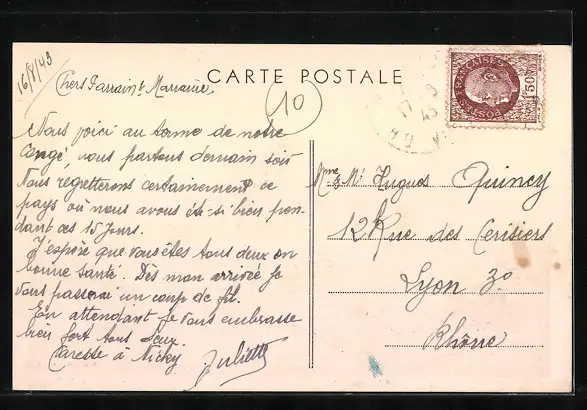 16/8/43
Chers Parrain & Marraine,
CARTE POSTALE
10
17 8
43
POSTES FRANÇAISES
1F50
Nous voici au terme de notre
Congé, nous partons demain soir
Nous regretterons certainement ce
pays où nous avons été si bien pen-
dant ces 15 jours.
J'espère que vous êtes tous deux en
bonne santé. Dès mon arrivée je
vous passerai un coup de fil.
En attendant je vous embrasse
bien fort tous deux.
Caresse à Nicky
Juliette
Mme & Mr Hugues Quincy
12 Rue des Cerisiers
Lyon 3o
Rhône